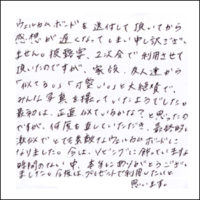 ウェルカムボードを送付して頂いてから
感想が遅くなってしまい申し訳ござい
ません。披露宴、二次会で利用させて
頂いたのですが、家族、友人達から
「似てる」「可愛い」と大絶賛で、
みんな写真を撮っていたようでした。
最初は、正直似ているかな?と思ったの
ですが、何度も直していただき、最終的に
激似でとても素敵なウェルカムボードに
なりました。今は、リビングに飾っています。
時間のない中、本当にありがとうござい
ました。今後は、プレゼントで利用したいと
思います。